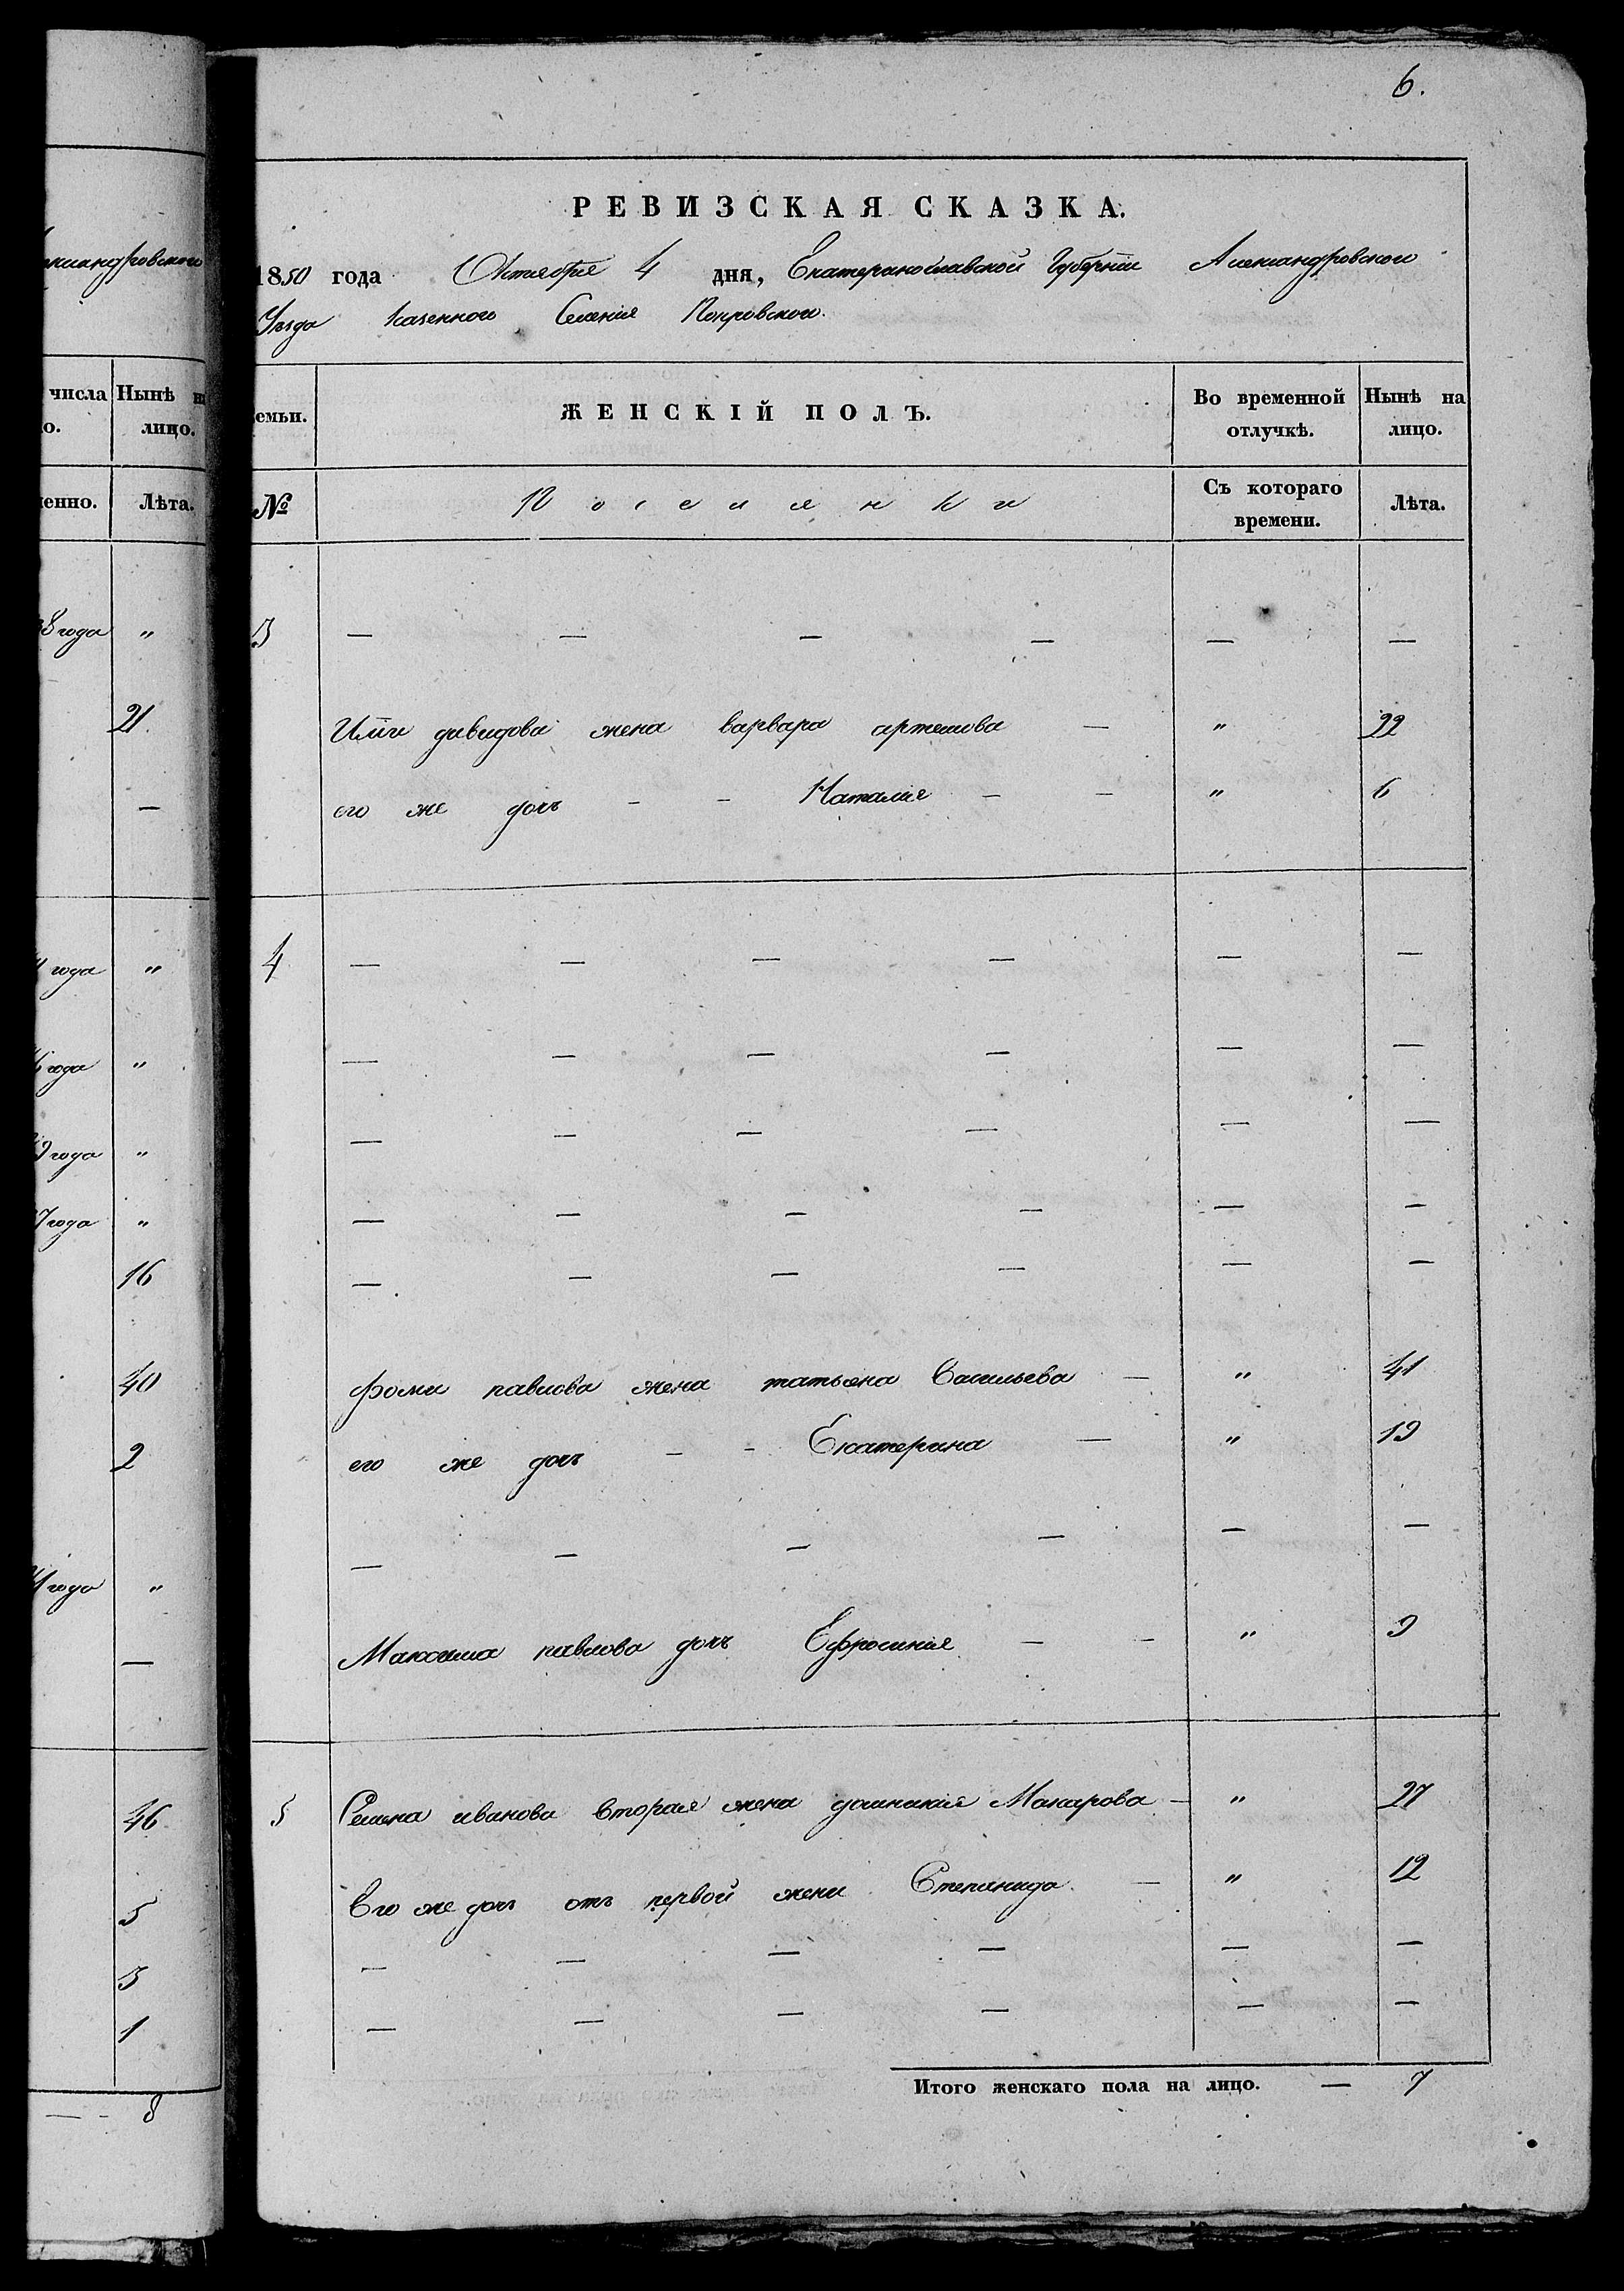 6.
РЕВИЗСКАЯ СКАЗКА.
1850 года Октября 4 дня, Екатеринославской Губернии Александровского
Уезда Казенного Селения Покровского.
числа Нынѣ
о. лицо.
енно. Лѣта.
емьи. ЖЕНСКІЙ ПОЛЪ. Во временной отлучкѣ. Нынѣ на лицо.
№ Поселянки Съ котораго времени. Лѣта.
8 года " 3 — — — — — —
21. давидова жена варвара артемова — " 22
— его же дочь - - Наталия — — " 6
года " 4 — — — — — —
года " — — — — — —
9 года " — — — — — —
7 года " — — — — — —
16 — — — — — —
40 фоми павлова жена татьяна Васильева — " 41
2 его же дочь — - Екатерина — " 19
года " — — — — — —
— Максима павлова дочь Ефросиния — — " 9
46 5 Семена иванова вторая жена домникия Макарова — " 27
5 Его же дочь отъ первой жени Степанида. — " 12
3 — — — — — —
1 — — — — — —
— - 8 Итого женскаго пола на лицо. — 7